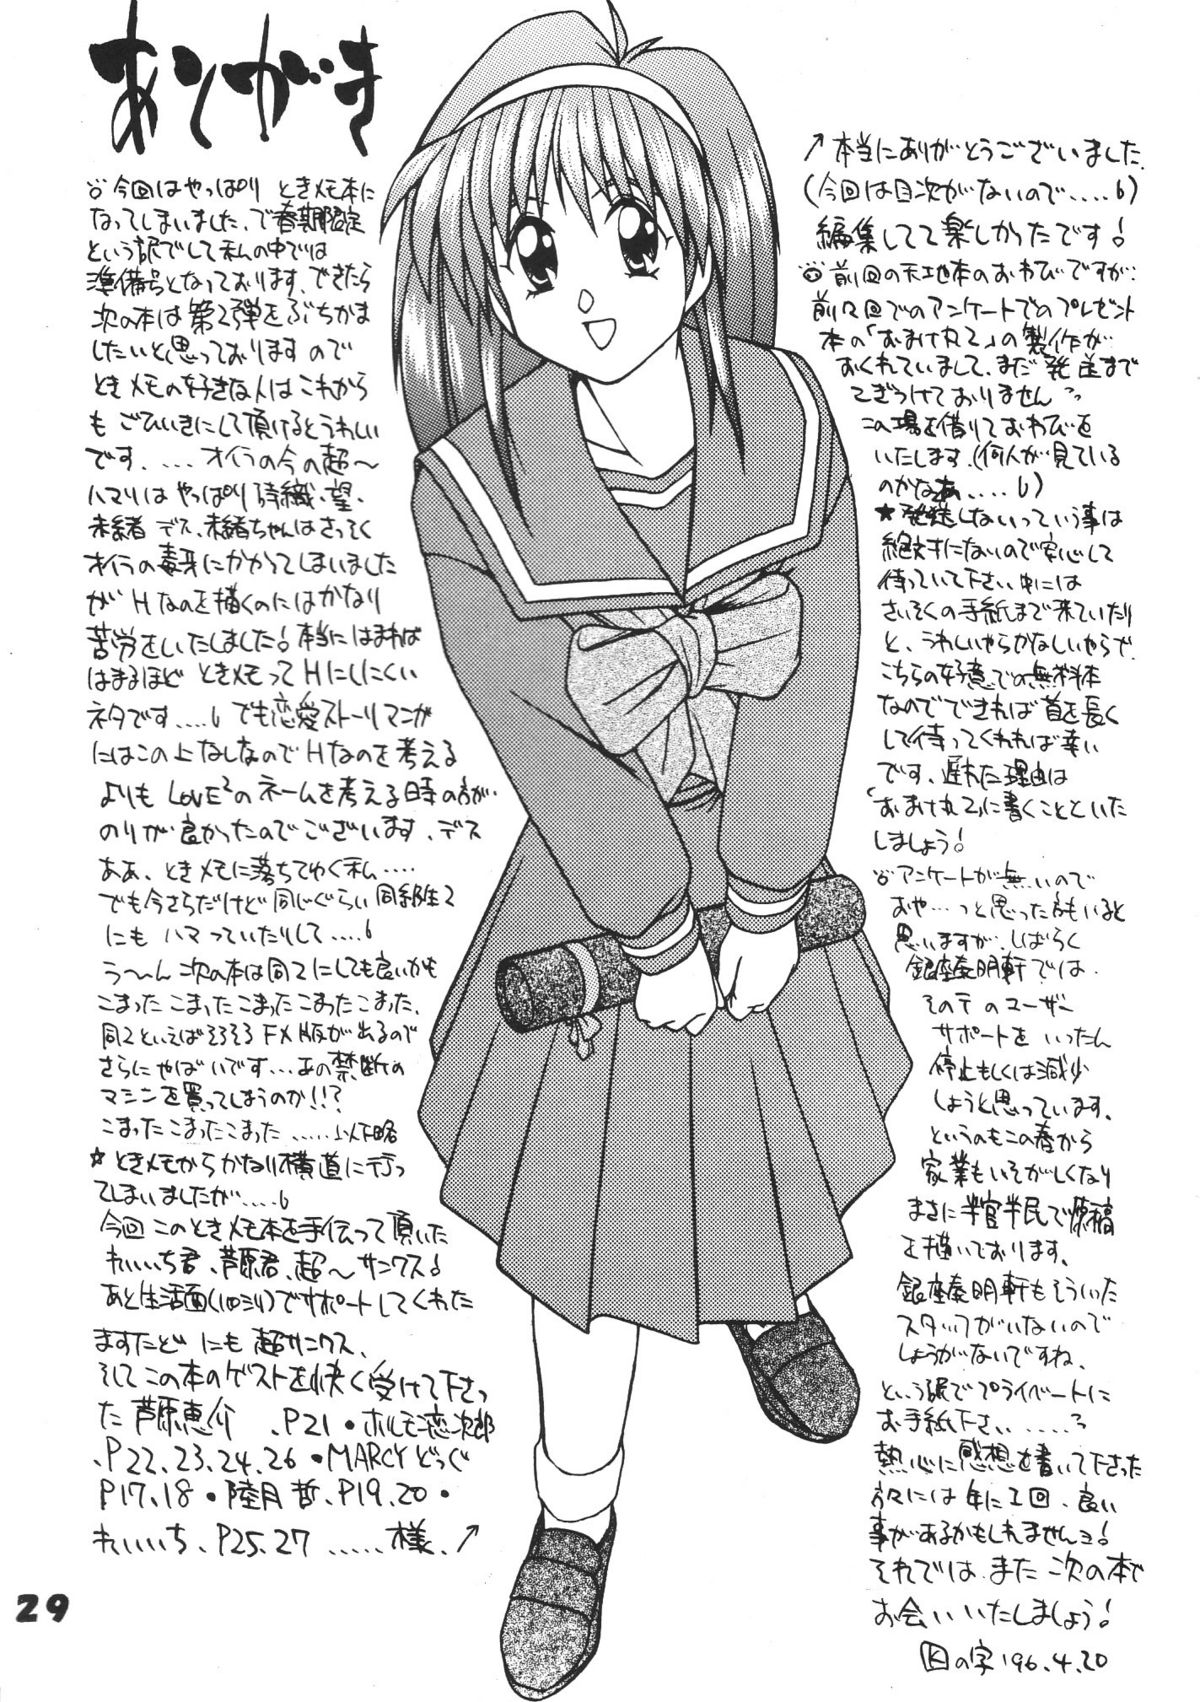 あとがき
今回はやっぱり ときメモ本に
なってしまいました、で春期限定
という訳でして私の中では
準備号となっております、できたら
次の本は第2弾をぶちかま
したいと思っておりますので
ときメモの好きな人はこれから
もごひいきにして頂けるとうれしい
です、....オイラの今の超〜
ハマリはやっぱり 詩織・望・
未緒 デス、未緒ちゃんはさっそく
オイラの毒牙にかかってしまいました
が Hなのを描くのにはかなり
苦労をいたしました!本当にはまれば
はまるほど ときメモって Hにしにくい
ネタです....6 でも恋愛ストーリマンガ
にはこの上なしなので Hなのを考える
よりも LOVE²のネームを考える時の方が
のりが良かったのでございます、デス
ああ、ときメモに落ちてゆく私.....
でも今さらだけど 同じぐらい 同級生2
にも ハマっていたりして....6
う〜ん 次の本は同2にしても良いかも
こまった こまった こまった こまった こまった、
同2といえばそろそろ FX版が出るので
さらにやばいです...あの禁断の
マシンを買ってしまうのか!!?
こまった こまった こまった ......以下略
☆ときメモからかなり横道に行っ
てしまいましたが....6
今回このときメモ本を手伝って頂いた
れいいち君、芦原君、超〜サンクス!
あと生活面()でサポートしてくれた
ますたどにも 超サンクス、
そしてこの本のゲストを快く受けて下さっ
た 芦原恵介 、P21・ホルモン恋次郎
、P22、23、24、26・MARCYどっぐ
P17、18・陸月 哲、P19、20・
れいいち、P25、27 .....様、↗
29
↗本当にありがとうございました、
(今回は目次がないので.....6)
編集してて楽しかったです!
前回の天地本のおわびですが、
前々回でのアンケートでのプレゼント
本の「おまけ丸2」の製作が
おくれていまして、まだ発送まで
こぎつけておりません
この場を借りておわびを
いたします、(何人が見ている
のかなぁ.....6)
★発送しないっていう事は
絶対にないので安心して
待っていて下さい、中には
さいそくの手紙まで来ていたり
と、うれしいやらかなしいやらで、
こちらの好意での無料本
なのでできれば首を長く
して待ってくれれば幸い
です、遅れた理由は
「おまけ丸2」に書くことといた
しましょう!
アンケートが無いので
おや...っと思った方もいると
思いますが、しばらく
銀座泰明軒では
その手のユーザー
サポートをいったん
停止もしくは減少
しようと思っています、
というのもこの春から
家業もいそがしくなり
まさに半官半民で原稿
を描いております、
銀座泰明軒もそういった
スタッフがいないので
しょうがないですね、
という訳でプライベートに
お手紙下さい......?
熱心に感想を書いて下さった
方々には 年に1回、良い
事があるかもしれませんヨ!
それでは また 次の本で
お会いいたしましょう!
囚の字 '96.4.20